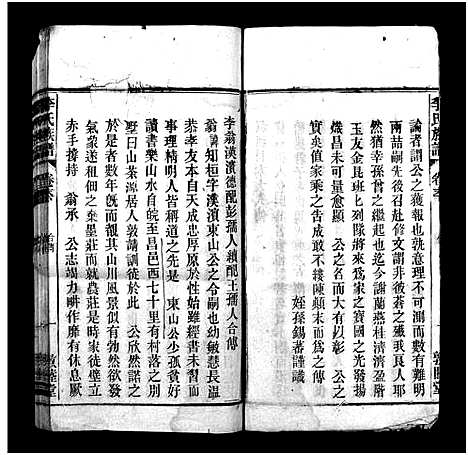 李氏族譜
論者謂公之獲報也孰意理不可知而數有難明
兩喆嗣先後召赴修文謂非彼蒼之殲我良人耶
然猶幸孫曾之繼起也迄今謝蘭燕桂濟濟盈階
玉友金昆班班比列隊將來為家之珍為國之光發揚
熾昌未可量愈顯 公之名而大有以彰 公之
實矣值家乘之告成敢不揣陳頗末而為之傳
姪孫錫蕃謹識
敦睦堂
李翁漢濱德配彭孺人續配王孺人合傳
翁諱知桓字漢濱東山公之令嗣也幼敏慧長溫
恭孝友本自天成忠厚原於性始雖經書未習而
事理精明人皆稱道之先是 東山公少孤貧好
讀書樂山水自皖至昌邑西七十里有村落之別
墅曰山茶源居人敦請訓徒於此 公欣然諾之
於是有年數年既而覩其山川風景似有勃然欲發
氣象遂不而之棄墨莊而就農莊是時家徒壁立
赤手撐持 翁承 公志竭力耕作靡有休息厥
李氏族譜
敦睦堂